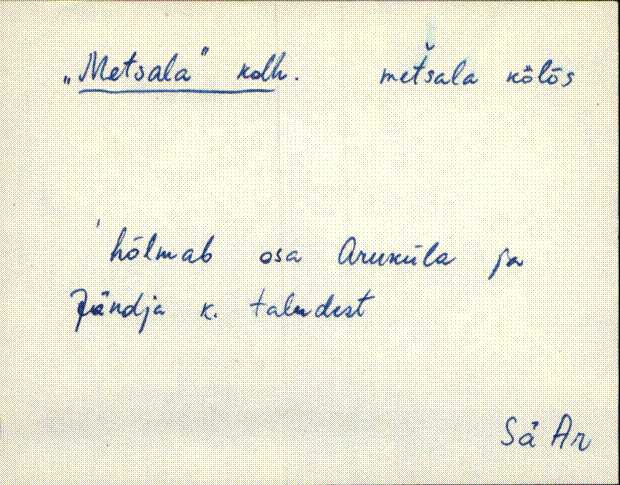 „Metsala" kolh. metšala kõlõs
hõlmab osa Aruküla ja
Jändja k. taludest
Sä Ar